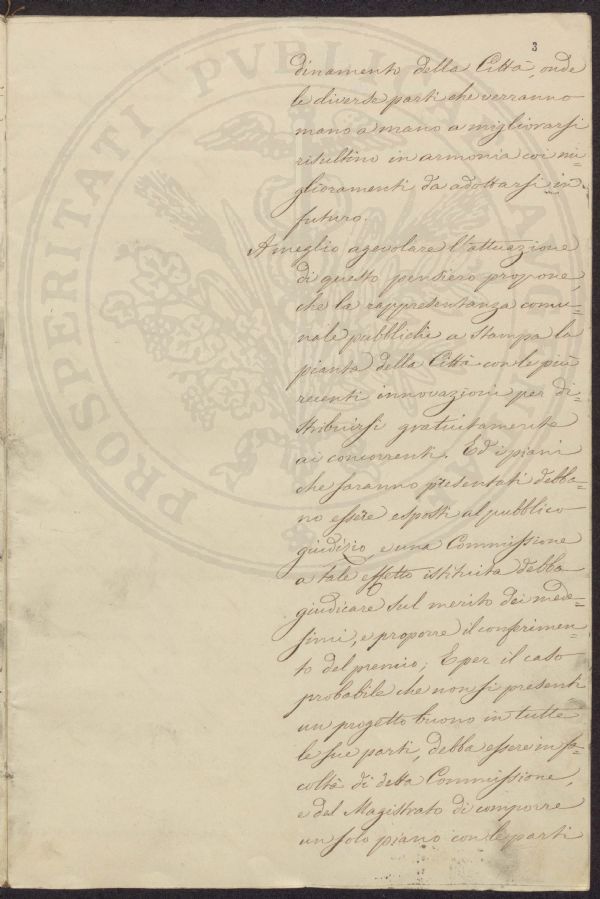 3
dinamento della Città, onde
le diverse parti che verranno
mano a mano a migliorarsi
risultino in armonia coi mi=
glioramenti da adottarsi in
futuro.
A meglio agevolare l'attuazione
di questo pensiero propone,
che la rappresentanza comu=
nale pubblichi a stampa la
pianta della Città con le più
recenti innovazioni per di=
stribuirsi gratuitamente
ai concorrenti. Ed i piani
che saranno presentati debba=
no essere esposti al pubblico
giudizio, e una Commissione
a tale effetto istituita debba
giudicare sul merito dei mede=
simi, e proporre il conferimen=
to del premio; E per il caso
probabile che non si presenti
un progetto buono in tutte
le sue parti, debba essere in fa=
coltà di detta Commissione,
e del Magistrato di comporre
un solo piano con le parti
PROSPERITATI PVBLICAE